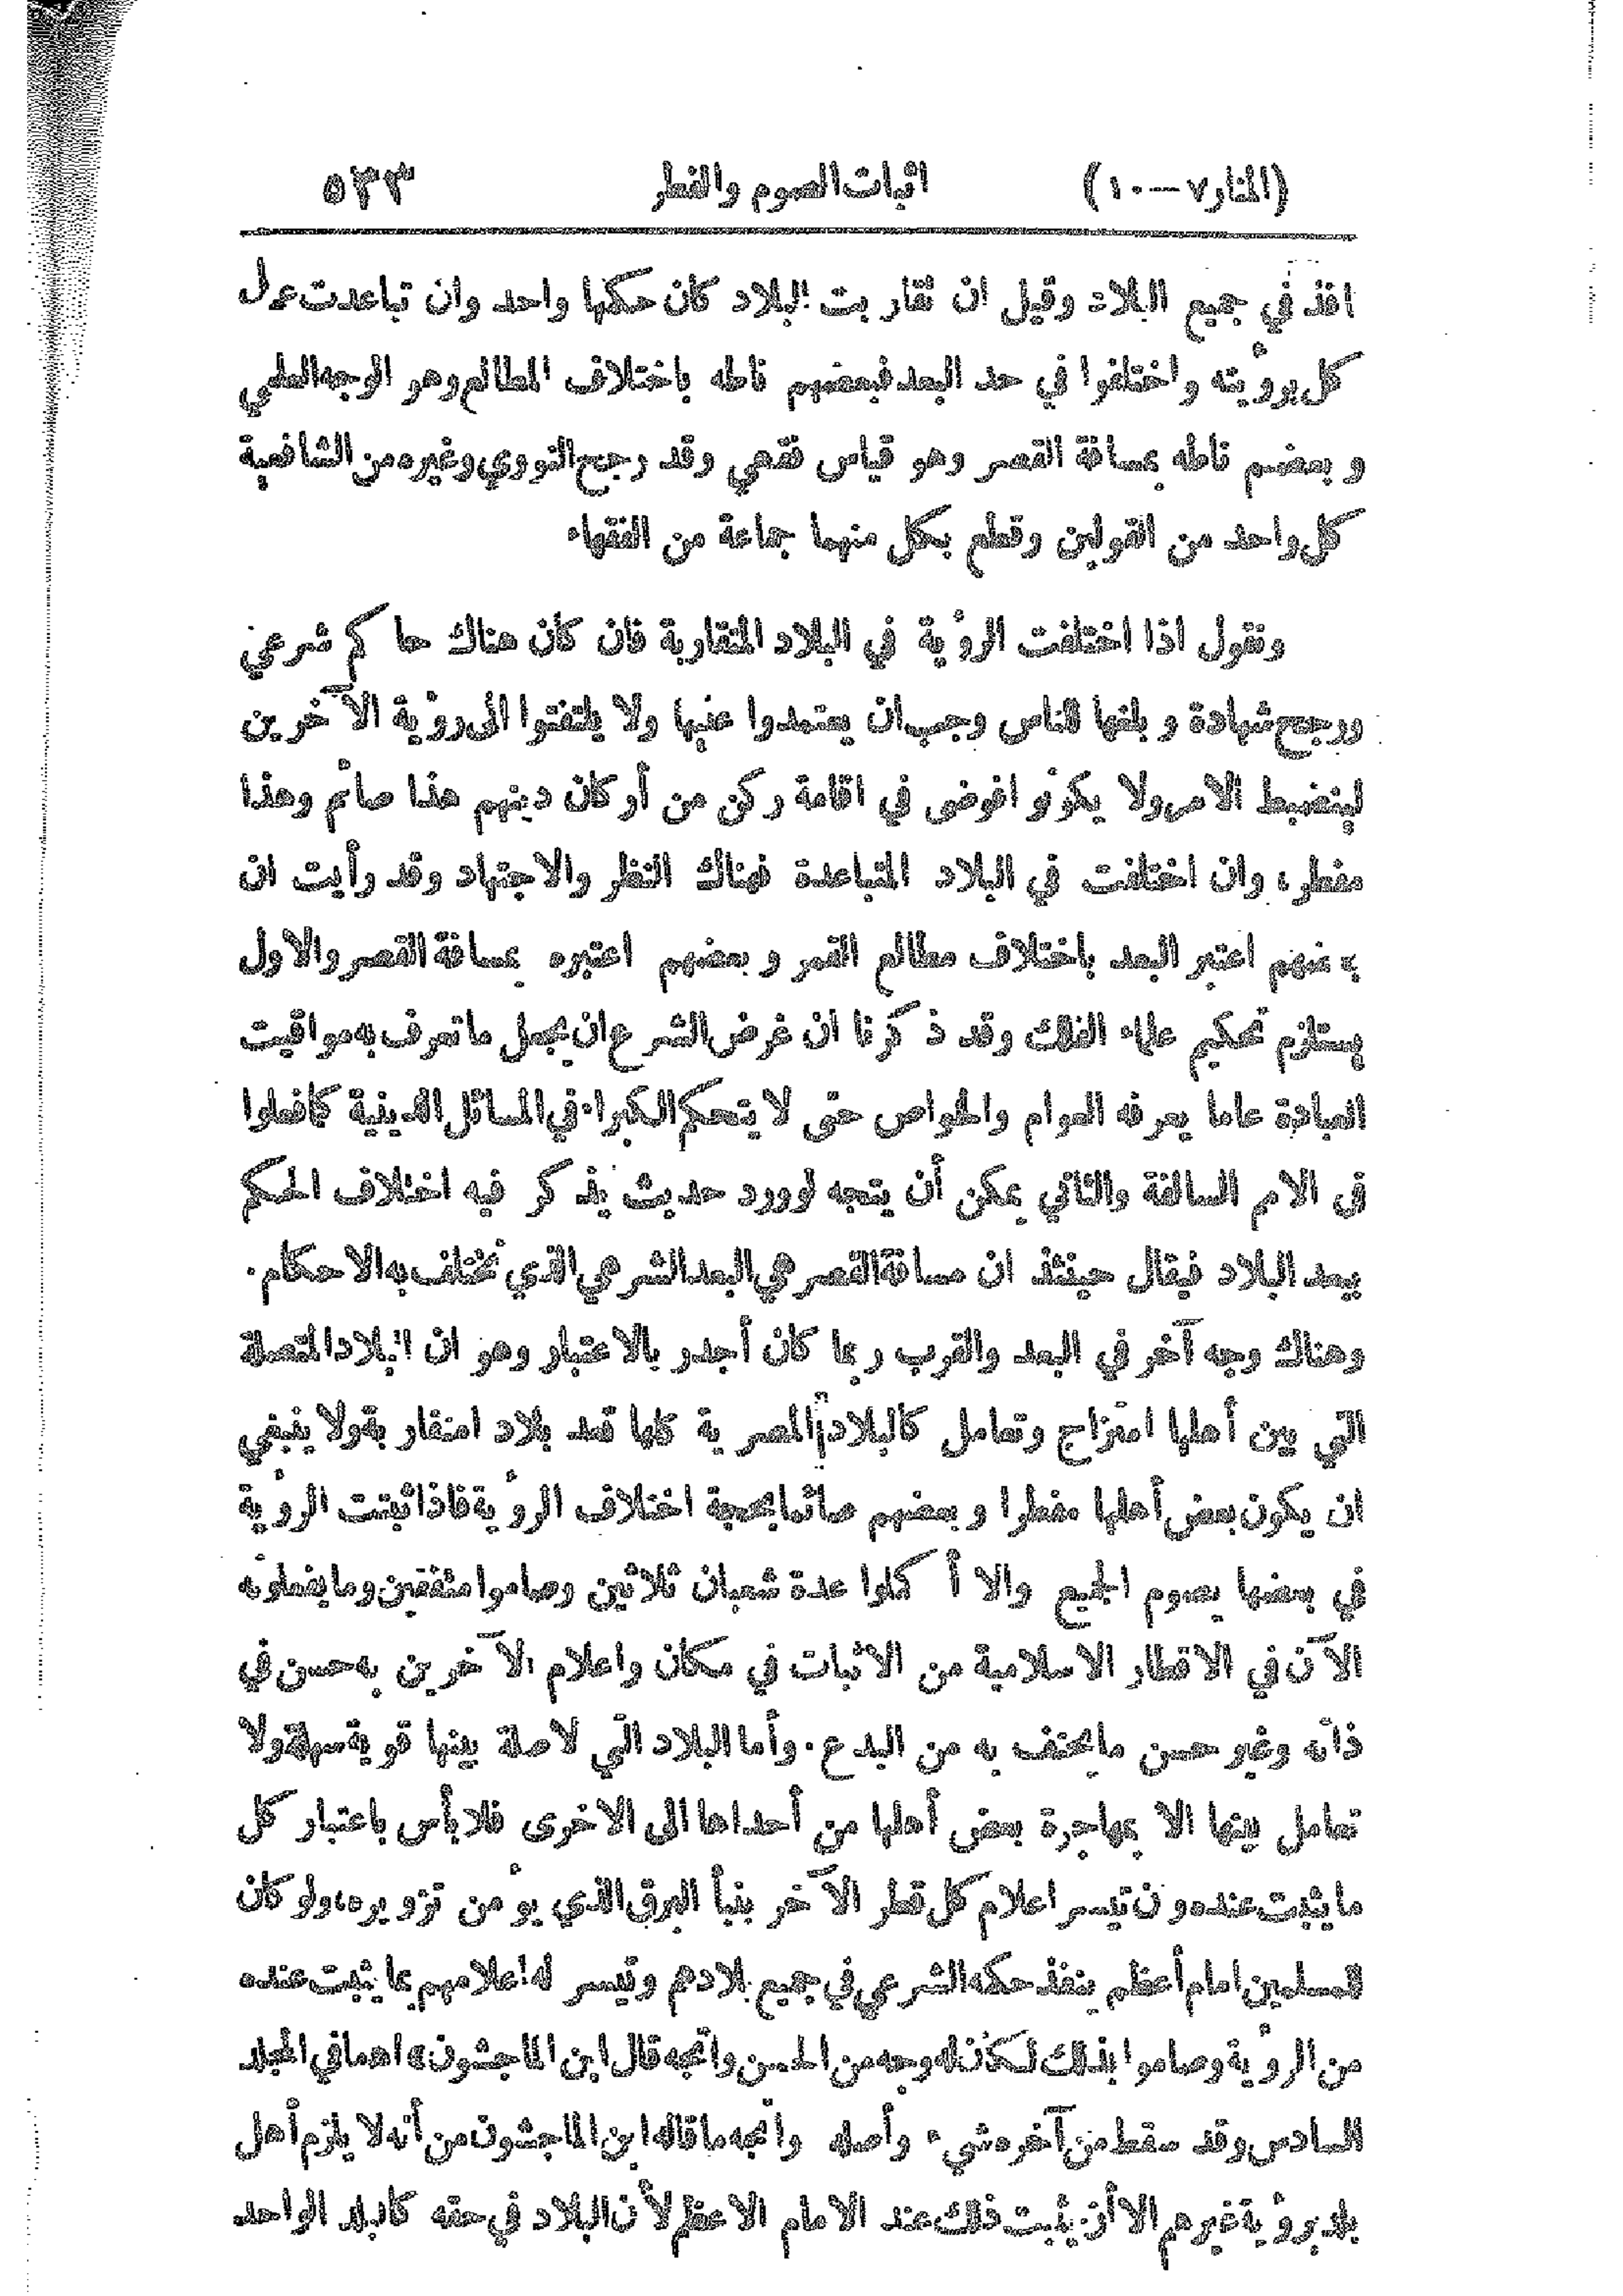 (المنار ٧ — ١٠) اثبات الصوم والفطر ٥٣٣
افذ في جميع البلاد وقيل ان تقار بت البلاد كان حكمها واحد وان تباعدت عمل
كل برؤيته واختلفوا في حد البعد فبعضهم ناطه باختلاف المطالع وهو الوجه العلمي
و بعضهم ناطه بمسافة القصر وهو قياس فقهي وقد رجح النووي وغيره من الشافعية
كل واحد من القولين وقطع بكل منهما جماعة من الفقهاء
ونقول اذا اختلفت الرؤية في البلاد المتقاربة فان كان هناك حاكم شرعي
ورجح شهادة و بلغها للناس وجب ان يعتمدوا عليها ولا يلتفتوا الى رؤية الآخرين
لينضبط الامر ولا يكونوا فوضى في اقامة ركن من أركان دينهم هذا صائم وهذا
مفطر، وان اختلفت في البلاد المتباعدة فهناك النظر والاجتهاد وقد رأيت ان
بعضهم اعتبر البعد باختلاف مطالع القمر و بعضهم اعتبره بمسافة القصر والاول
يستلزم تحكيم علماء الفلك وقد ذكرنا ان غرض الشرع ان يجعل ما تعرف به مواقيت
العبادة عاما يعرفه العوام والخواص حتى لا يتحكم الكبراء في المسائل الدينية كما فعلوا
في الامم السالفة والثاني يمكن أن يتجه لو ورد حديث يذكر فيه اختلاف الحكم
ببعد البلاد فيقال حينئذ ان مسافة القصر هي البعد الشرعي الذي تختلف به الاحكام.
وهناك وجه آخر في البعد والقرب ربما كان أجدر بالاعتبار وهو ان البلاد المتصلة
التي بين أهلها امتزاج وتعامل كالبلاد المصرية كلها تعد بلاد امتقاربة ولا ينبغي
ان يكون بعض أهلها مفطرا و بعضهم صائما بحجة اختلاف الرؤية فاذا ثبتت الرؤية
في بعضها يصوم الجميع والا أكملوا عدة شعبان ثلاثين وصاموا متفقين وما يفعلونه
الآن في الاقطار الاسلامية من الاثبات في مكان واعلام الآخرين به حسن في
ذاته وغير حسن ما يحتف به من البدع. وأما البلاد التي لا صلة بينها قوية سهلة ولا
تعامل بينها الا بمهاجرة بعض أهلها من أحداها الى الاخرى فلا بأس باعتبار كل
ما يثبت عنده و ن تيسر اعلام كل قطر الآخر بنبأ البرق الذي يؤمن تزويره، ولو كان
للمسلمين امام أعظم ينفذ حكمه الشرعي في جميع بلادهم وتيسر له اعلامهم بما يثبت عنده
من الرؤية وصاموا بذلك لكان له وجه من الحسن واتجه قال ابن الماجشون» اه ما في المجلد
السادس وقد سقط من آخره شيء وأصله واتجه ما قاله ابن الماجشون من أنه لا يلزم أهل
بلد برؤية غيرهم الا أن يثبت ذلك عند الامام الاعظم لأن البلاد في حقه كالبلد الواحد